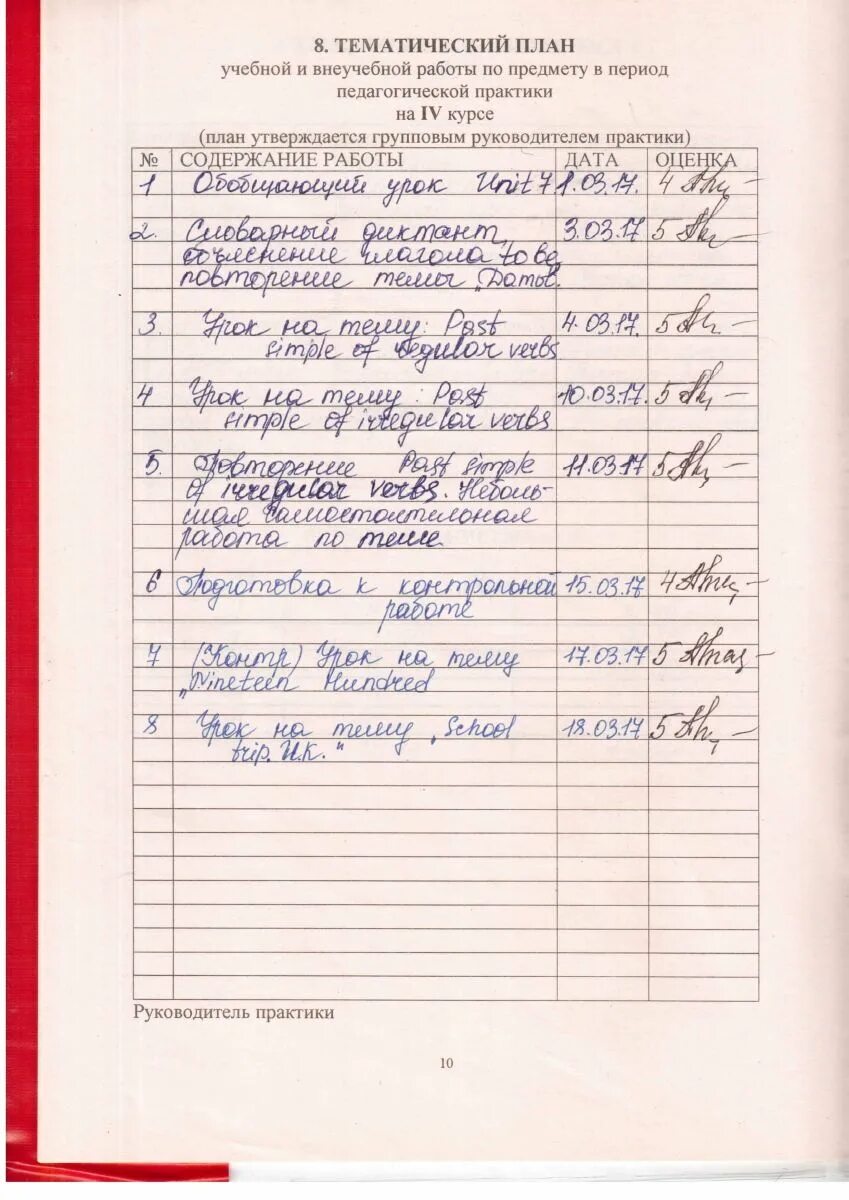 8. ТЕМАТИЧЕСКИЙ ПЛАН
учебной и внеучебной работы по предмету в период
педагогической практики
на IV курсе
(план утверждается групповым руководителем практики)
№ СОДЕРЖАНИЕ РАБОТЫ ДАТА ОЦЕНКА
1 Обобщающий урок Unit 7. 1.03.17. 4
2. Словарный диктант, 3.03.17 5
объяснение глагола to be,
повторение темы „Даты".
3. Урок на тему: Past 4.03.17. 5
simple of regular verbs
4 Урок на тему: Past 10.03.17. 5
simple of irregular verbs
5. Повторение Past simple 11.03.17 5
of irregular verbs. Неболь-
шая самостоятельная
работа по теме.
6 Подготовка к контрольной 15.03.17 4
работе
7 (Контр) Урок на тему 17.03.17 5
„Nineteen Hundred
8 Урок на тему „School 18.03.17 5
trip. U.K."
Руководитель практики
10